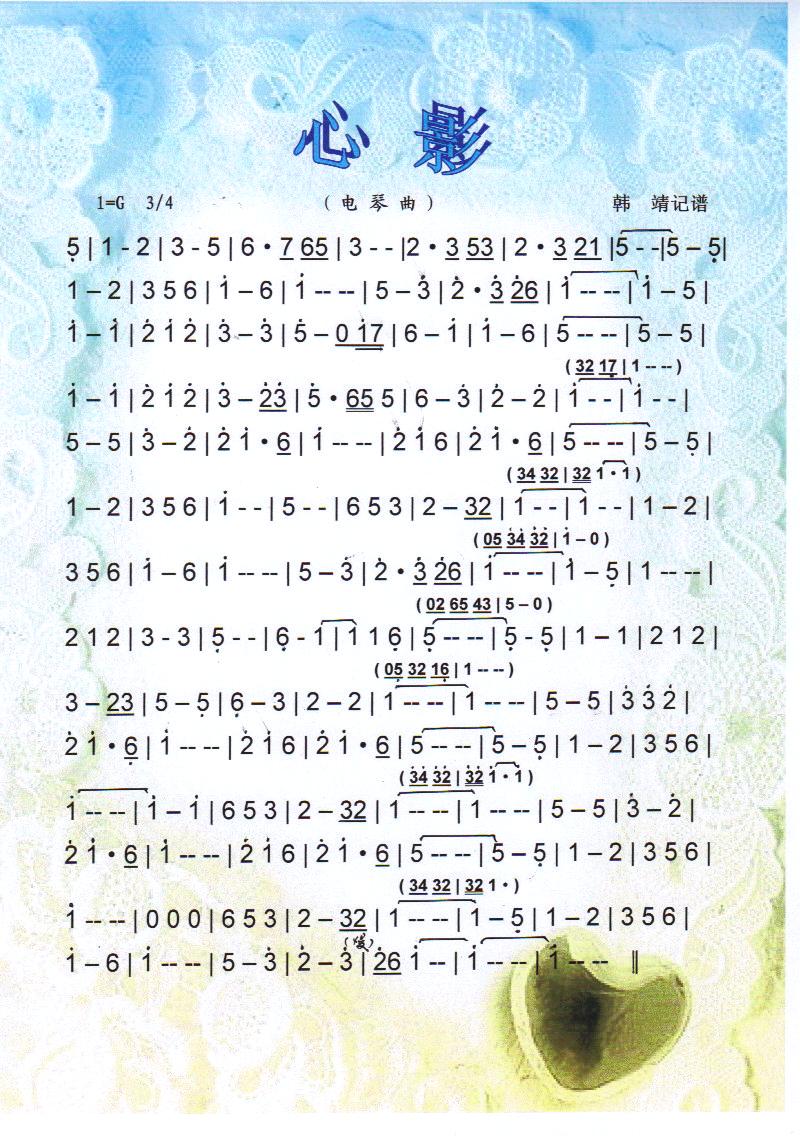 心 影
1=G 3/4 （ 电 琴 曲 ） 韩 靖记谱
5̣ | 1 - 2 | 3 - 5 | 6 · 7 65 | 3 - - | 2 · 3 53 | 2 · 3 21 | 5 - - | 5 – 5̣ |
1 – 2 | 3 5 6 | 1̇ – 6 | 1̇ -- -- | 5 – 3̇ | 2̇ · 3̇ 2̇6 | 1̇ -- -- | 1̇ – 5 |
1̇ – 1̇ | 2̇ 1̇ 2̇ | 3̇ – 3̇ | 5̇ – 0 1̇7 | 6 – 1̇ | 1̇ – 6 | 5 -- -- | 5 – 5 |
( 32 17̣ | 1 -- -- )
1̇ – 1̇ | 2̇ 1̇ 2̇ | 3̇ – 2̇3̇ | 5̇ · 65 5 | 6 – 3̇ | 2̇ – 2̇ | 1̇ - - | 1̇ - - |
5 – 5 | 3̇ – 2̇ | 2̇ 1̇ · 6 | 1̇ -- -- | 2̇ 1̇ 6 | 2̇ 1̇ · 6 | 5 -- -- | 5 – 5̣ |
( 34 32 | 32 1 · 1 )
1 – 2 | 3 5 6 | 1̇ - - | 5 - - | 6 5 3 | 2 – 32 | 1 - - | 1 - - | 1 – 2 |
( 05 3̇4̇ 3̇2̇ | 1̇ – 0 )
3 5 6 | 1̇ – 6 | 1̇ -- -- | 5 – 3̇ | 2̇ · 3̇ 2̇6 | 1̇ -- -- | 1̇ – 5̣ | 1 -- -- |
( 02 65 43 | 5 – 0 )
2 1 2 | 3 - 3 | 5̣ - - | 6̣ - 1 | 1 1 6̣ | 5̣ -- -- | 5̣ - 5̣ | 1 – 1 | 2 1 2 |
( 05̣ 32 16̣ | 1 -- -- )
3 – 23 | 5 – 5̣ | 6̣ – 3 | 2 – 2 | 1 -- -- | 1 -- -- | 5 – 5 | 3̇ 3̇ 2̇ |
2̇ 1̇ · 6̣ | 1̇ -- -- | 2̇ 1̇ 6 | 2̇ 1̇ · 6 | 5 -- -- | 5 – 5̣ | 1 – 2 | 3 5 6 |
( 3̇4̇ 3̇2̇ | 3̇2̇ 1̇ · 1̇ )
1̇ -- -- | 1̇ – 1̇ | 6 5 3 | 2 – 32 | 1 -- -- | 1 -- -- | 5 – 5 | 3̇ – 2̇ |
2̇ 1̇ · 6 | 1̇ -- -- | 2̇ 1̇ 6 | 2̇ 1̇ · 6 | 5 -- -- | 5 – 5̣ | 1 – 2 | 3 5 6 |
( 34 32 | 32 1 · )
1̇ -- -- | 0 0 0 | 6 5 3 | 2 – 32 | 1 -- -- | 1 – 5̣ | 1 – 2 | 3 5 6 |
(慢)
1̇ – 6 | 1̇ -- -- | 5 – 3̇ | 2̇ – 3̇ | 2̇6 1̇ -- | 1̇ -- -- | 1̇ -- -- ‖